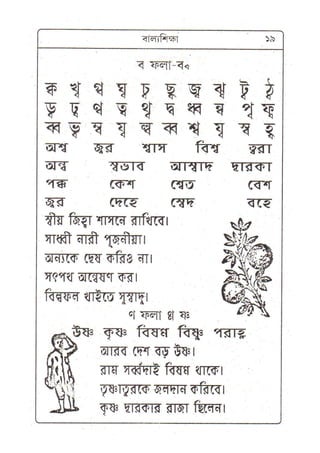 বাল্যশিক্ষা ১৯
ব ফলা-ব
ক্ব খ্ব গ্ব ঘ্ব চ্ব ছ্ব জ্ব ঝ্ব ট্ব ঠ্ব
ড্ব ঢ্ব ণ্ব ত্ব থ্ব দ্ব ধ্ব ন্ব প্ব ফ্ব
ব্ব ভ্ব ম্ব য্ব ল্ব ব্ব শ্ব ষ্ব স্ব হ্ব
অশ্ব জ্বর শ্বাস বিশ্ব ত্বরা
স্বভাব আস্বাদ দ্বারকা
পক্ব কেশ শ্বেত বেশ
জ্বর দেহে স্বেদ বহে
স্বীয় জিহ্বা শাসনে রাখিবে।
সাধ্বী নারী পূজনীয়া।
অন্যকে দ্বেষ করিও না।
সৎপথ অন্বেষণ কর।
বিল্বফল খাইতে সুস্বাদু।
ণ ফলা ণ্ণ ষ্ণ
উষ্ণ কৃষ্ণ বিষণ্ণ বিষ্ণু পরাহ্ণ
আরব দেশ বড় উষ্ণ।
রাম সর্ব্বদাই বিষণ্ণ থাকে।
তৃষ্ণাতুরকে জলদান করিবে।
কৃষ্ণ দ্বারকার রাজা ছিলেন।